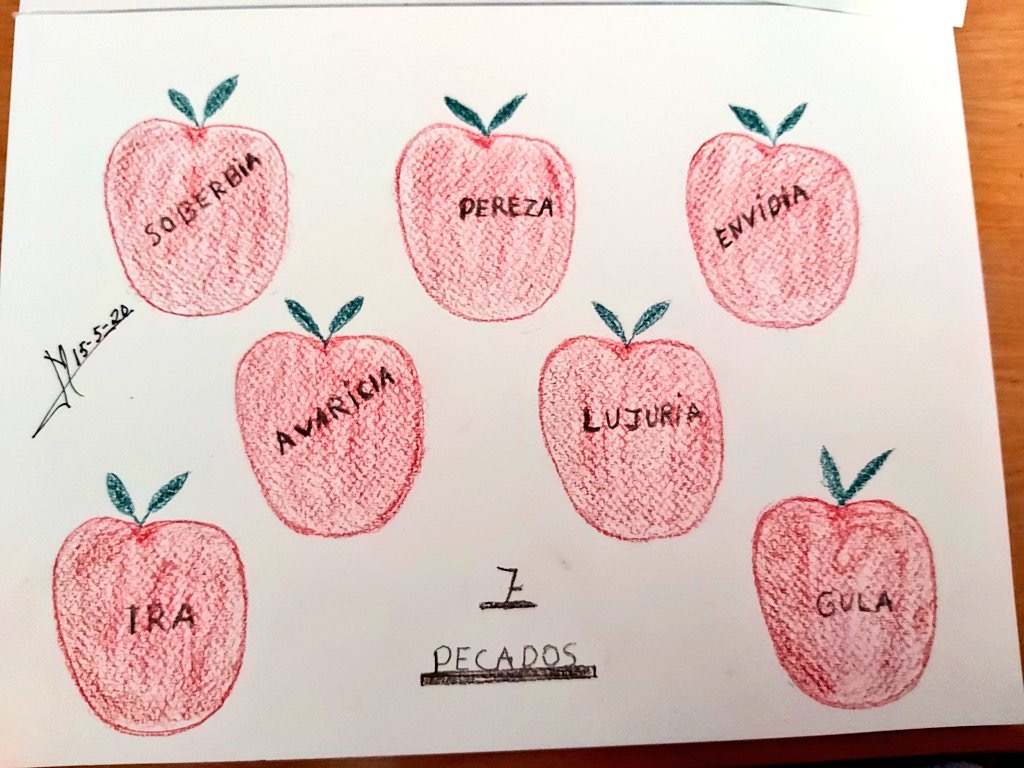 SOBERBiA
PEREZA
ENViDiA
15-5-20
AVARiCiA
LUJURiA
IRA
GULA
7
PECADOS